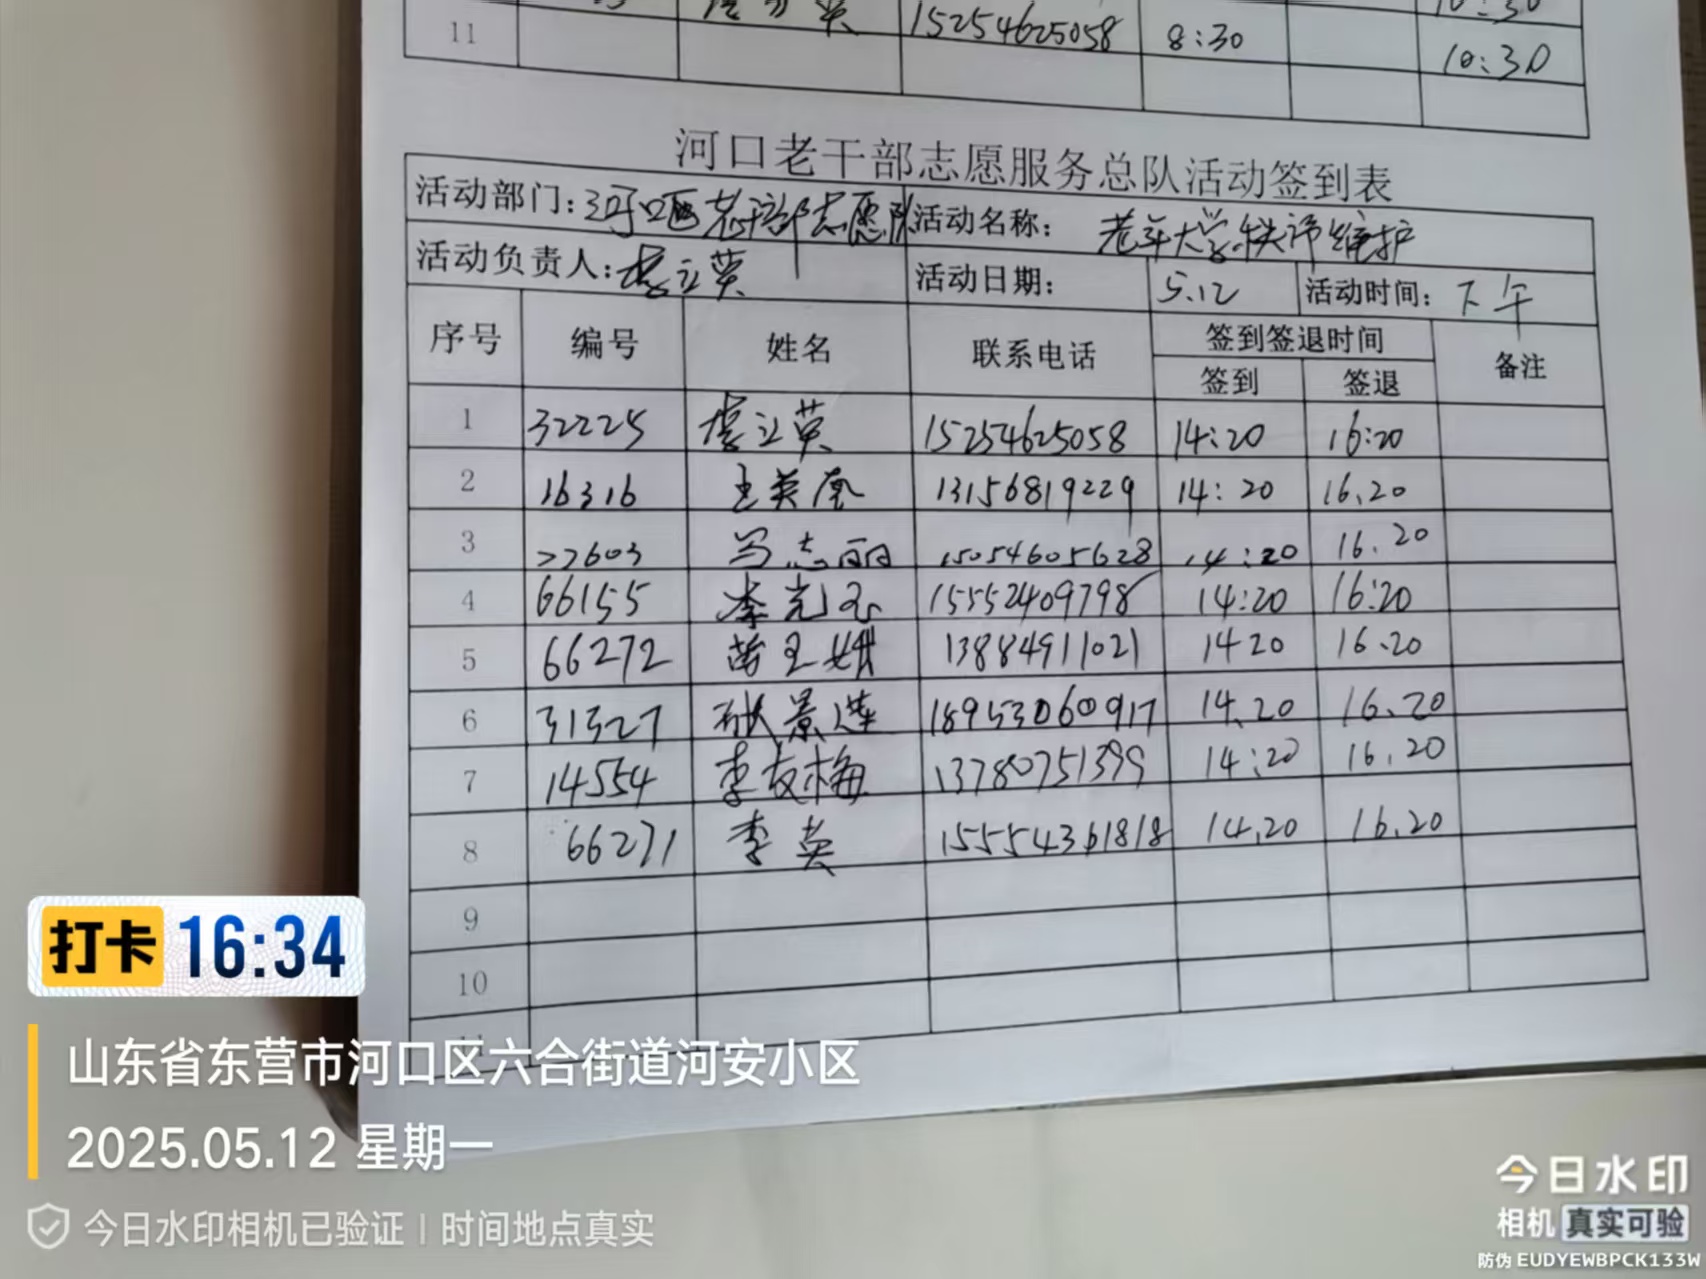 11 15254625058 8:30 10:30
10:30
河口老干部志愿服务总队活动签到表
活动部门: 河口 老干部志愿队 活动名称: 老年大学 维护
活动负责人: 立英 活动日期: 5.12 活动时间: 下午
序号 编号 姓名 联系电话 签到签退时间 备注
签到 签退
1 32225 立英 15254625058 14:20 16:20
2 16316 王英 13156819229 14:20 16.20
3 22603 马志丽 15054605628 14:20 16.20
4 66155 李光玉 15552409798 14:20 16:20
5 66272 玉娥 13884911021 14 20 16.20
6 31327 张景莲 18953060917 14.20 16.20
7 14554 李友梅 13780751399 14:20 16.20
8 66271 李英 15554361818 14.20 16.20
9
10
11
打卡 16:34
山东省东营市河口区六合街道河安小区
2025.05.12 星期一
今日水印相机已验证 | 时间地点真实
今日水印
相机 真实可验
防伪 EUDYEWBPCK133W